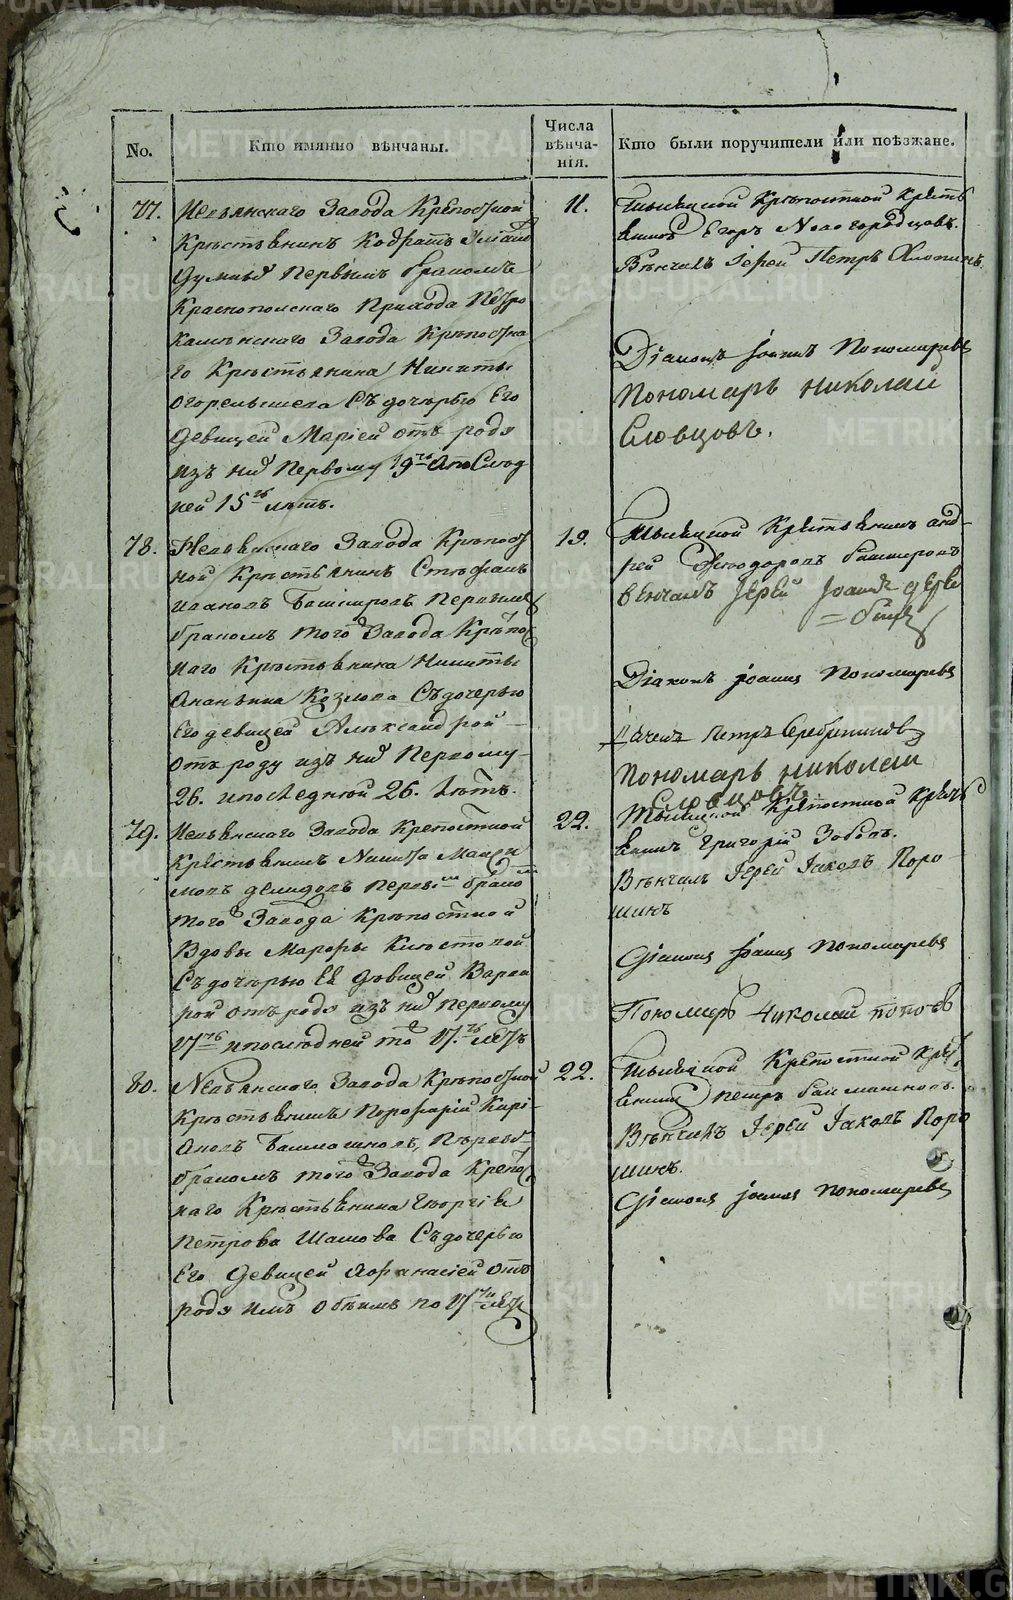 No.
Кто имянно вѣнчаны.
Числа вѣнча-нія.
Кто были поручители или поѣзжане.
77.
Невьянскаго Завода Крепостной
Крестьянинъ Кодратъ
Думныхъ Первымъ бракомъ
Краснопольскаго Прихода Петро
каменскаго Завода Крѣпостна
го Крестьянина Никиты
Огорельшева Съ дочерью Его
Девицей Маріей отъ роду
изъ них Первому 19ть а послед
ней 15ть лѣтъ.
11.
Тывашной Крѣпостной Кресть
янинъ Егоръ Новогородцовъ.
Вѣнчалъ Іерей Петръ Хлопинъ
Діаконъ Іоаннъ Пономаревъ
Пономарь Николай
Словцовъ.
78.
Невьянскаго Завода Крѣпост
ной Крестьянинъ Стефанъ
Ивановъ Башкировъ Первымъ
бракомъ того Завода Крѣпос
наго Крестьянина Никиты
Ананьина Козлова Съ дочерью
Его девицей Александрой
отъ роду изъ них Первому
26. и последней 26. лѣтъ.
19.
Крестьянинъ анд
рей Феодоровъ Башкировъ
венчалъ Іерей Іоаннъ
Діаконъ Іоаннъ Пономаревъ
Дьячекъ Петръ Серебрениковъ
Пономарь Николай
Словцовъ
79.
Невьянскаго Завода Крепостной
Крестьянинъ Никита
Демидовъ Первым бракомъ
того Завода Крѣпостной
Вдовы Марфы
Съ дочерью Ея Девицей Варва
рой отъ роду изъ них первому
17ть и последней то 17.ть летъ
22.
Крепостной Кресть
янинъ Григорій Зобовъ.
Вѣнчалъ Іерей Іаковъ Поро
шинъ
Діаконъ Іоаннъ Пономаревъ
Пономарь Николай Поповъ
80.
Невьянскаго Завода Крѣпостной
Крестьянинъ Порфирій Кирі
Башмашковъ, Первы
бракомъ того Завода Крепос
наго Крестьянина Георгія
Петрова Шамова Съ дочерью
Его Девицей Афанасіей отъ
роду имъ обѣимъ по 17ти летъ
22.
Крепостной Крест
янинъ Петръ Башмашковъ.
Вѣнчалъ Іерей Іаковъ Поро
шинъ.
Діаконъ Іоаннъ Пономаревъ
METRIKI.GASO-URAL.RU